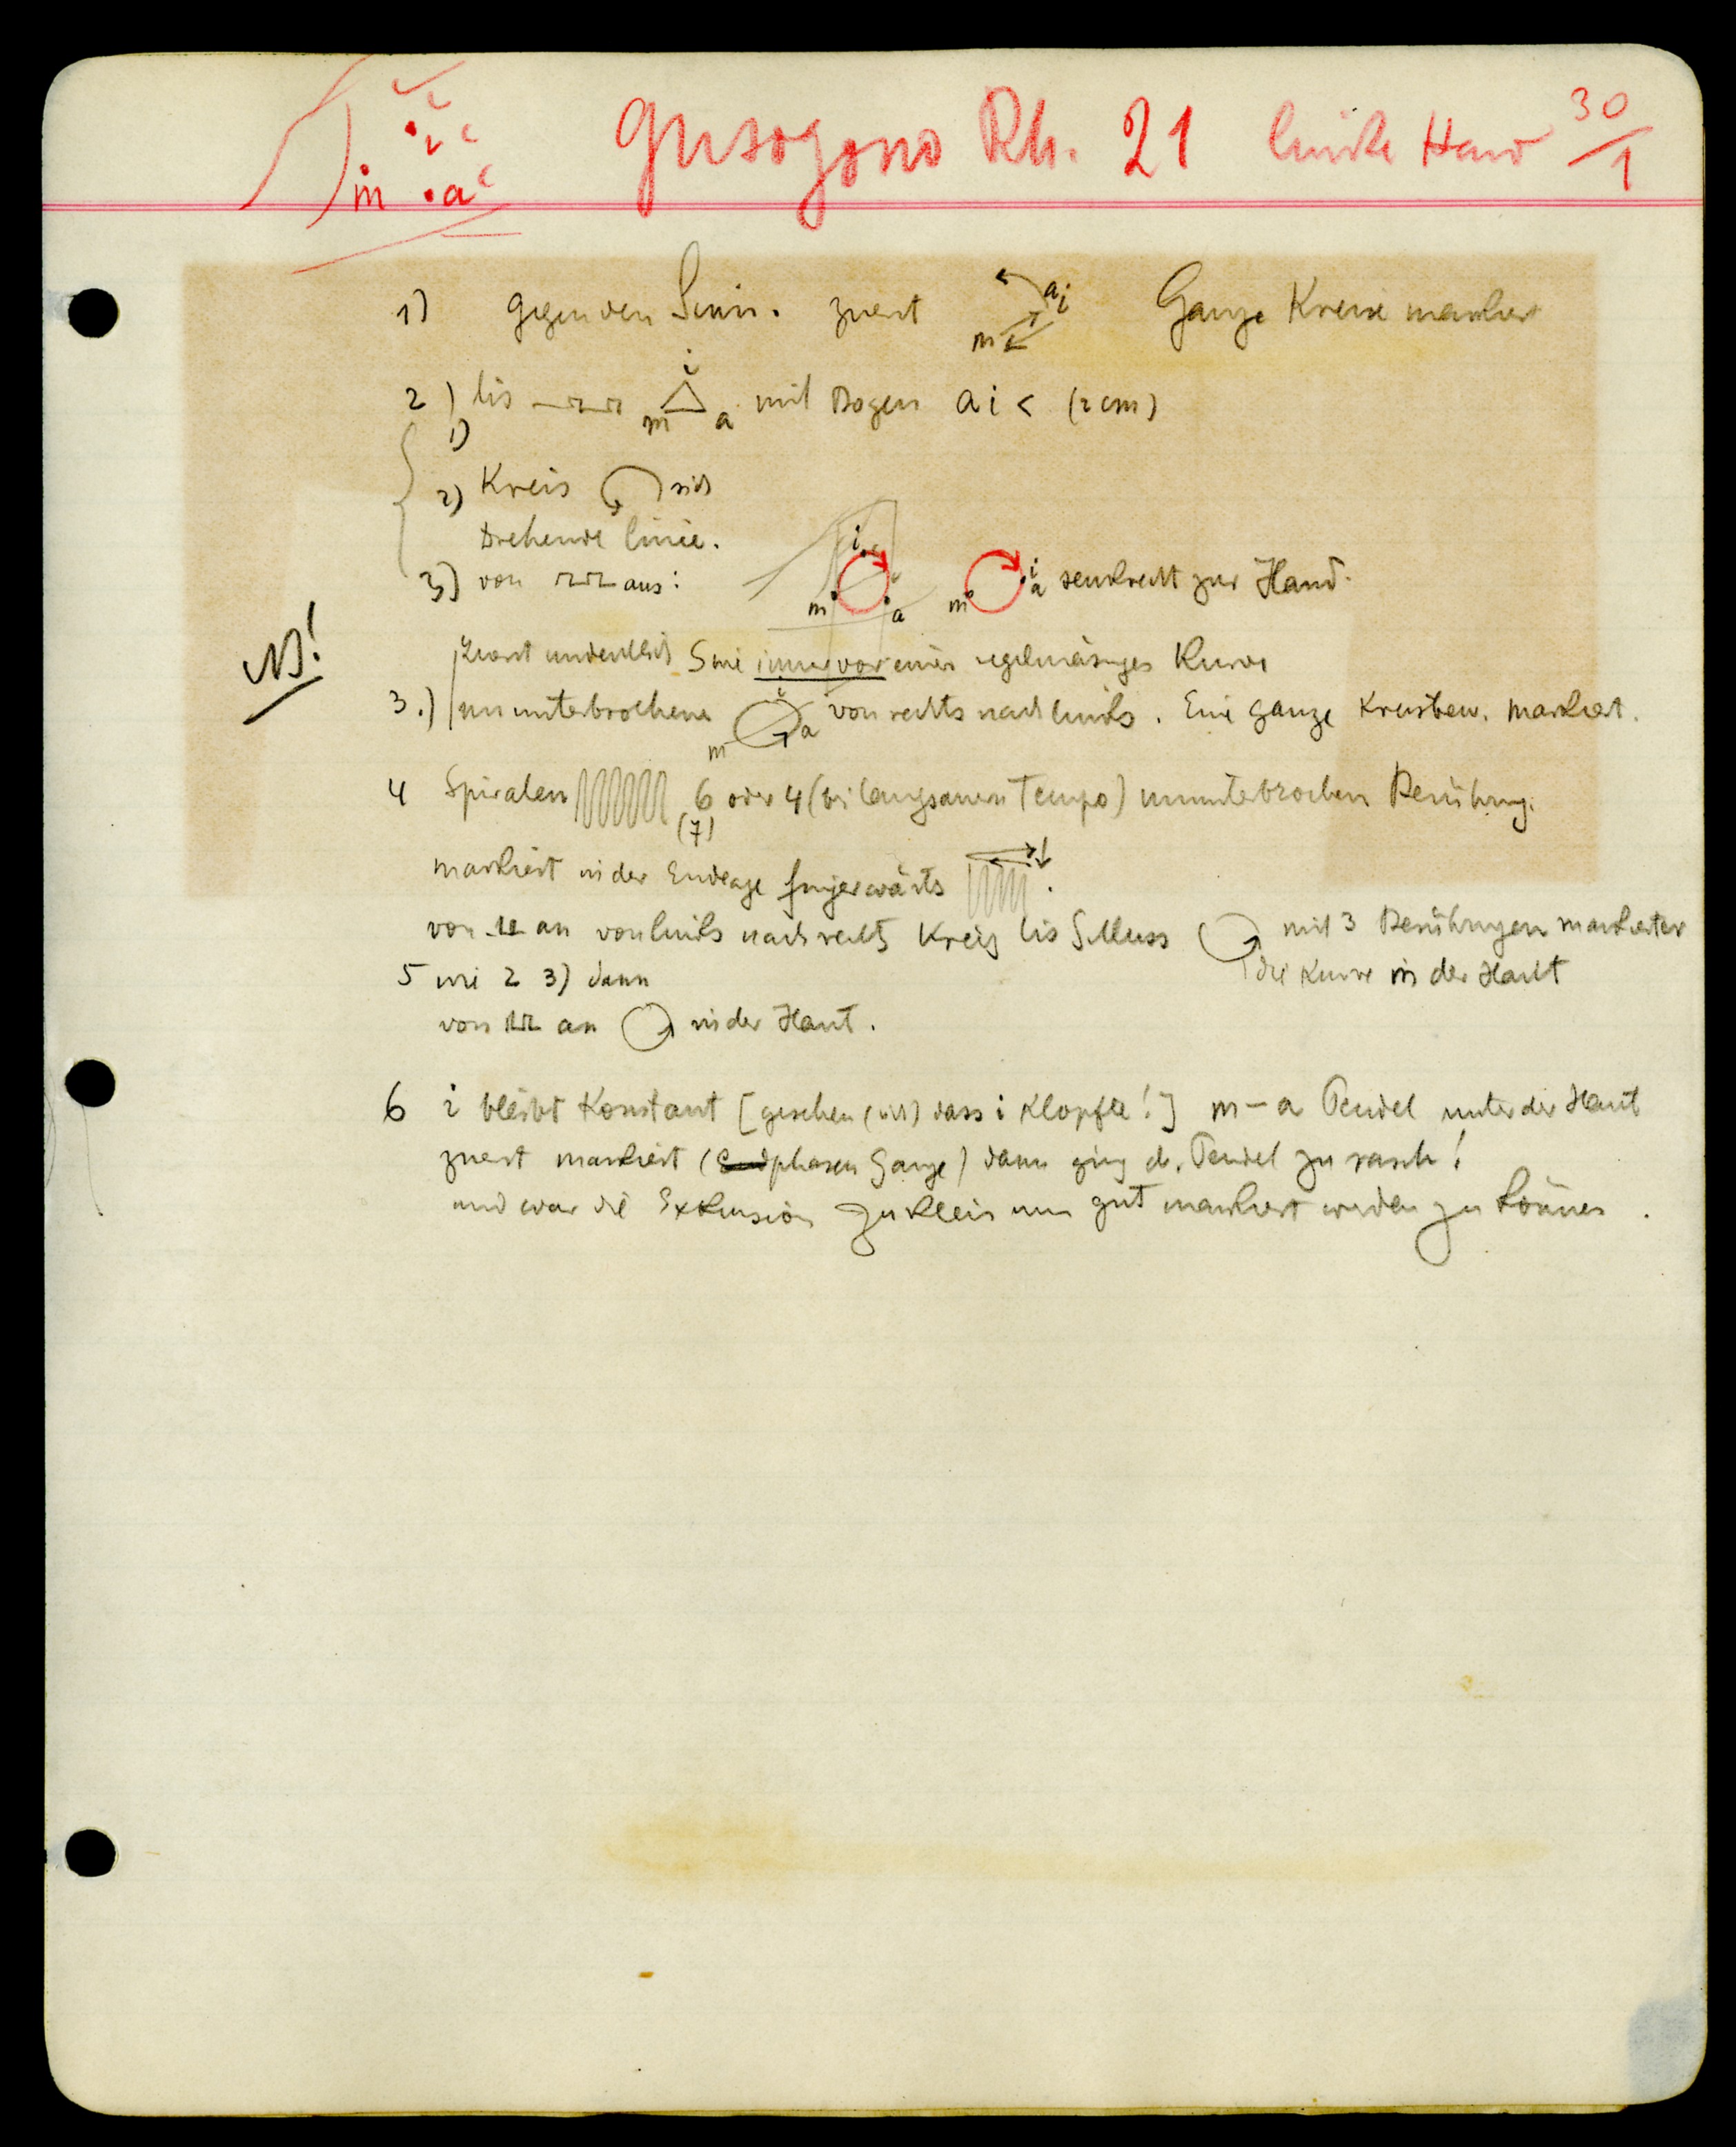 m a Rh. 21 linke Hand 30/1
1) gegen den Sinn. zuerst m a i Ganze Kreise markiert
2) bis m i a mit Bogen a i < (2 cm)
1)
2) Kreis sich
drehende Linie.
3) von aus: m i a m i a senkrecht zur Hand.
NB!
zuerst undeutlich Sinn immer vor einer regelmässiges Kurve
3.) ununterbrochene m i a von rechts nach links. Eine ganze Kreisbew. markiert.
4 Spiralen 6 oder 4 (bei langsamen Tempo) ununterbrochen Berührung.
(7)
markiert in der Endlage fingerwärts
von an von links nach rechts Kreis bis Schluss mit 3 Berührungen markierter
die Kurve in der Haut
5 wie 2 3) dann
von an in der Haut.
6 i bleibt Konstant [gesehen (ich) dass i klopfte!] m – a Pendel unter der Haut
zuerst markiert (Endphasen Gange) dann ging d. Pendel zu rasch!
und war die Exkursion zu klein um gut markiert werden zu können.